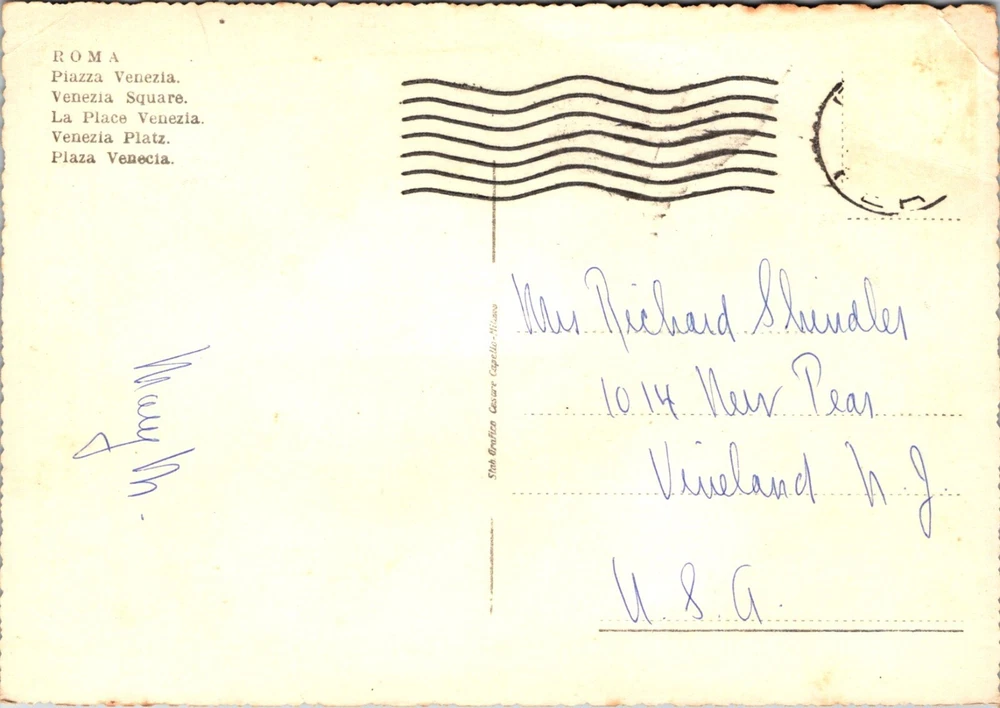 ROMA
Piazza Venezia.
Venezia Square.
La Place Venezia.
Venezia Platz.
Plaza Venecia.
Stab Grafico Cesare Capello-Milano
Mrs Richard Shindler
1014 New Pear
Vineland N J
U. S. A.
Mary M.